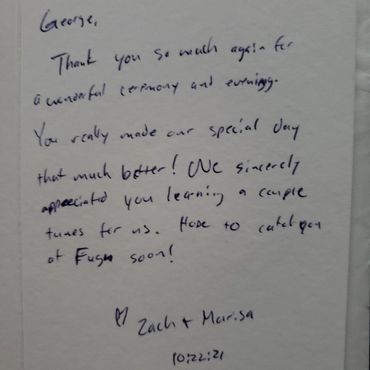 George,
Thank you so much again for
a wonderful ceremony and evening.
You really made our special day
that much better! We sincerely
appreciated you learning a couple
tunes for us. Hope to catch you
at Fugu soon!
♡ Zach + Marisa
10:22:21